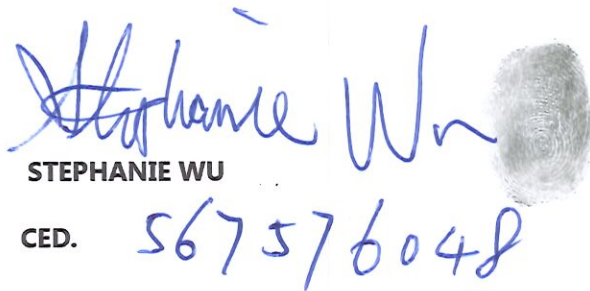 Stephanie Wu
STEPHANIE WU
CED. 567576048